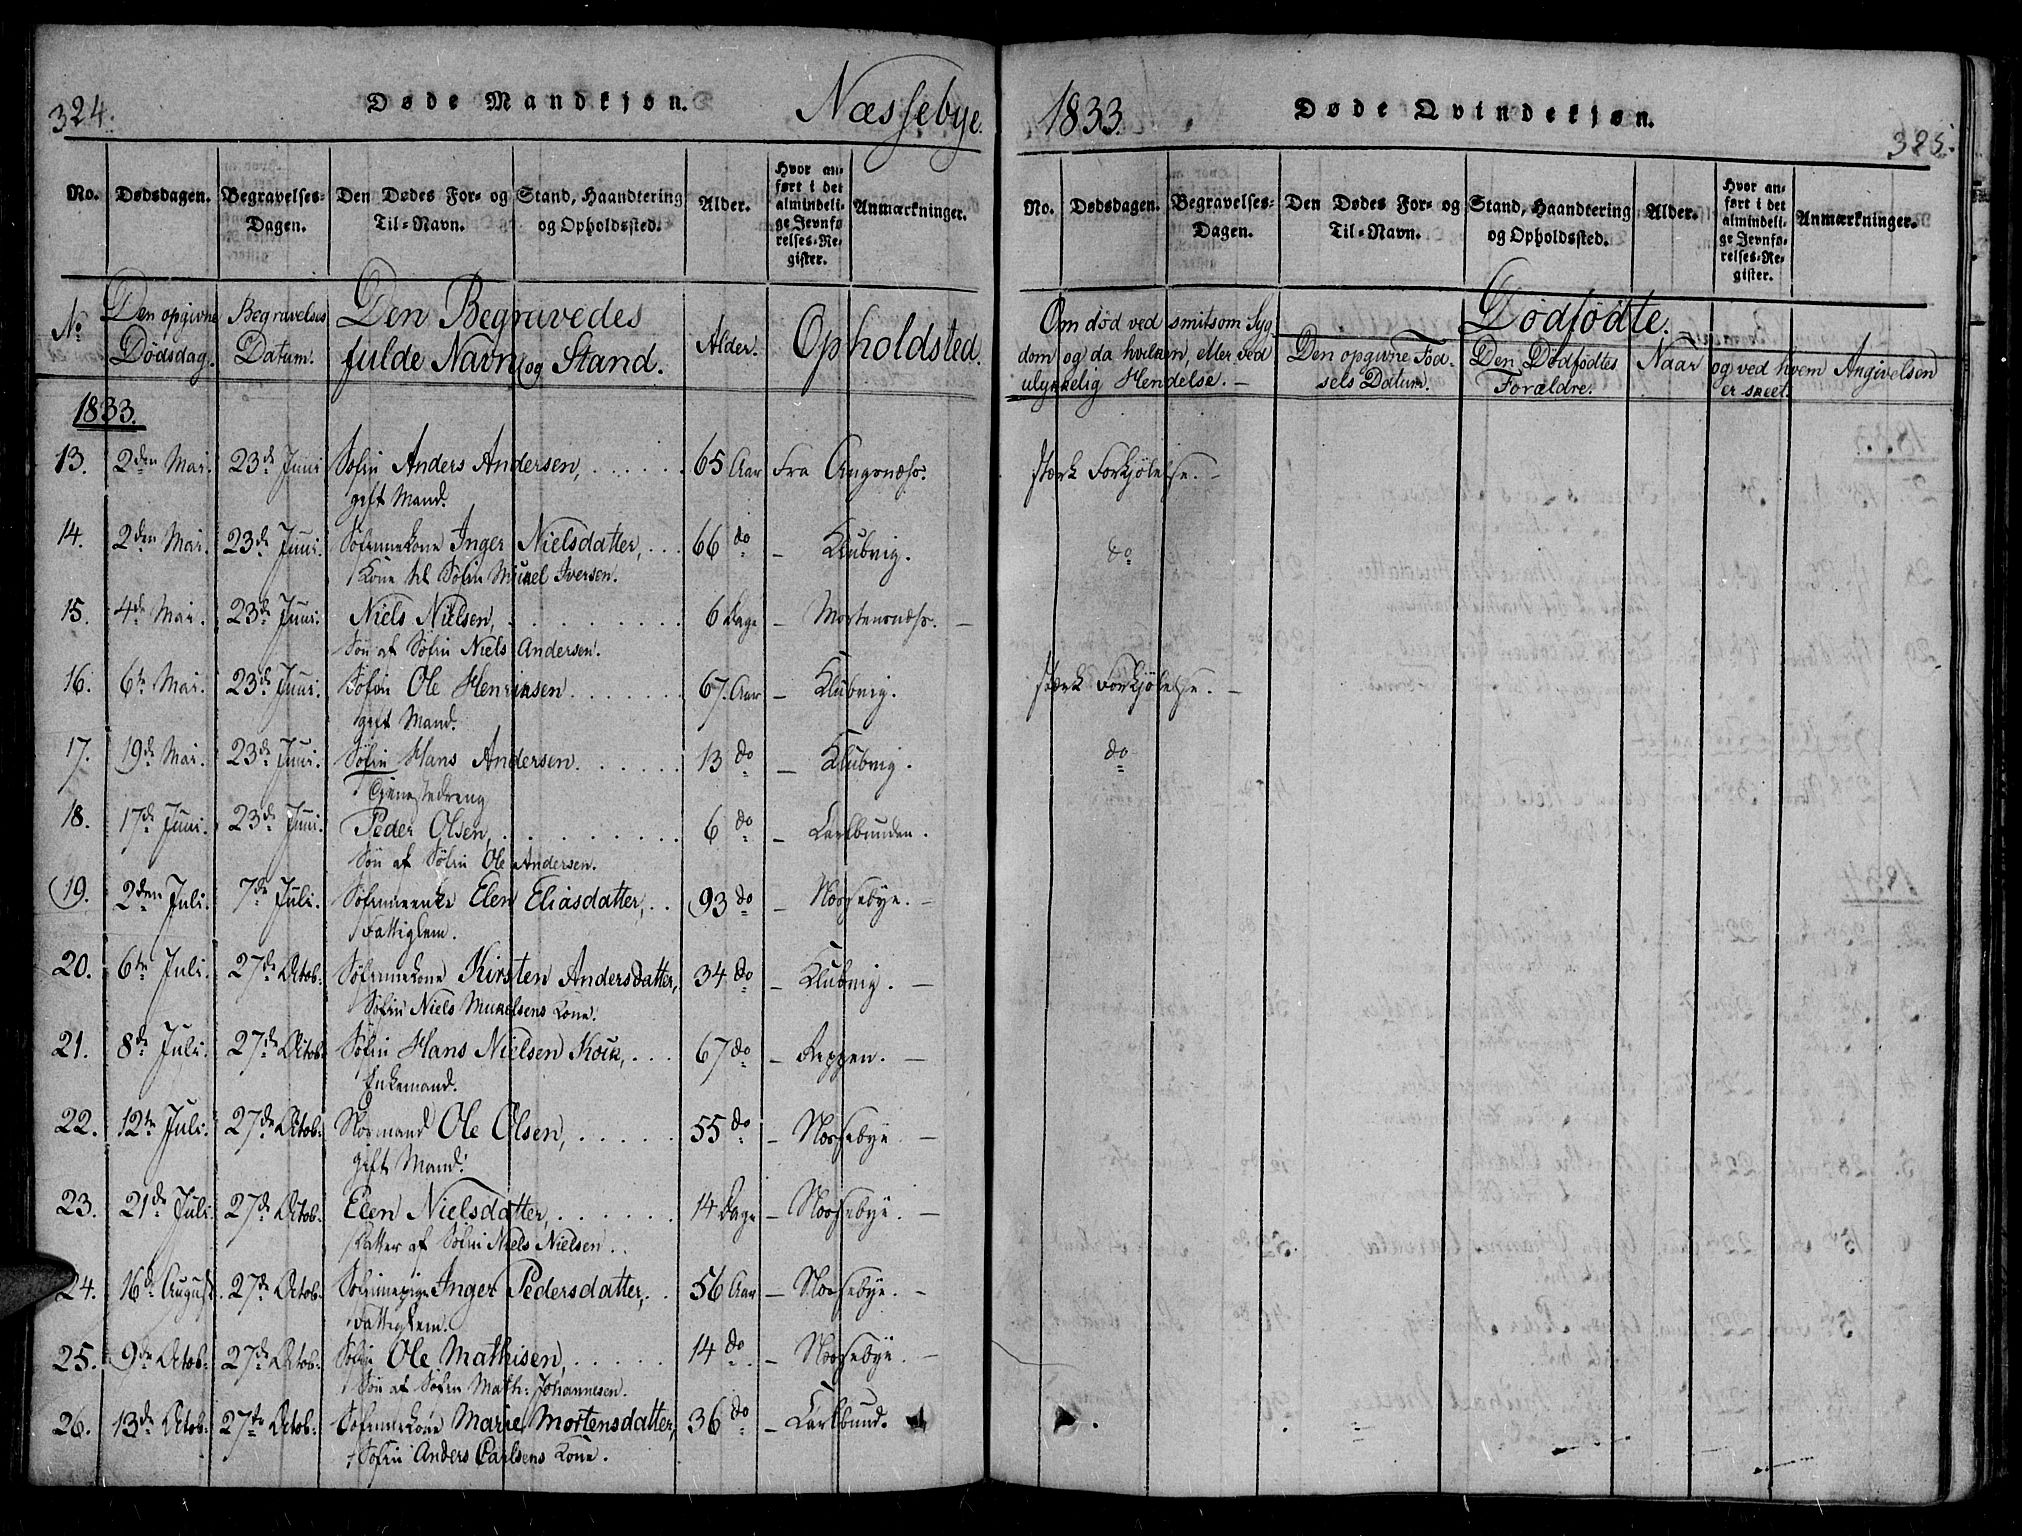 324.
Døde Mandkjøn.
Næssebye.
No.
Dødsdagen.
Begravelses-
Dagen.
Den Dødes For- og
Til-Navn.
Stand, Haandtering
og Opholdssted.
Alder.
Hvor an-
ført i det
almindeli-
ge Jevnfø-
relses-Re-
gister.
Anmærkninger.
No
Den opgivne
Dødsdag.
Begravelses
Datum.
Den Begravedes
fulde Navn og Stand.
Alder.
Opholdsted.
1833.
13. 2den Mai. 23de Juni Søfin Anders Andersen, 65 Aar Fra Angsnæss.
gift Mand.
14. 2den Mai. 23de Juni. Søfinnekone Inger Nielsdatter, 66 do – Klubvig.
Kone til Søfin Mickel Iversen.
15. 4de Mai. 23de Juni. Niels Nielsen, 6 Dage – Mortensnæss. –
Søn af Søfin Niels Andersen.
16. 6te Mai. 23de Juni. Søfin Ole Henriksen. 67. Aar – Klubvig.
gift Mand.
17. 19de Mai. 23de Juni. Søfin Hans Andersen. 13 do – Klubvig.
Tjenestedreng
18. 17de Juni. 23de Juni. Peder Olsen, 6 do – Carlbunden.
Søn af Søfin Ole Andersen.
19. 2den Juli. 7de Juli. Søfinneenke Elen Eliasdatter, 93 do – Næssebye. –
Fattiglem.
20. 6te Juli. 27de Octob: Søfinnekone Kirsten Andersdatter, 34 do – Klubvig. –
Søfin Niels Mickelsens Kone.
21. 8de Juli. 27de Octob: Søfin Hans Nielsen Kock, 67 do – Reppen. –
Enkemand.
22. 12te Juli. 27de Octob: Normand Ole Olsen, 55 do – Næssebye. –
gift Mand.
23. 21de Juli. 27de Octob: Elen Nielsdatter, 14 Dage – Næssebye. –
Datter af Søfin Niels Nielsen.
24. 16de August. 27de Octob: Søfinnepige Inger Pedersdatter, 56 Aar – Næssebye. –
Fattiglem.
25. 9de Octob: 27de Octob: Søfin Ole Mathisen, 14 do – Næssebye. –
Søn af Søfin Math: Johannesen.
26. 13de Octob: 27de Octob: Søfinnekone Marie Mortensdatter, 36 do – Carlbund.
Søfin Anders Carlsens Kone.
1833.
Døde Qvindekjøn.
325.
No.
Dødsdagen.
Begravelses-
Dagen.
Den Dødes For- og
Til-Navn.
Stand, Haandtering
og Opholdssted.
Alder.
Hvor an-
ført i det
almindeli-
ge Jevnfø-
relses-Re-
gister.
Anmærkninger.
Om død ved smitsom Syg-
dom og da hvilken, eller ved
ulykkelig Hendelse. –
Dødfødte.
Den opgivne Fød-
sels Datum.
Den Dødfødtes
Forældre.
Naar og ved hvem Angivelsen
er skeet.
stærk Forkjølelse. –
do
stærk Forkjølelse. –
do